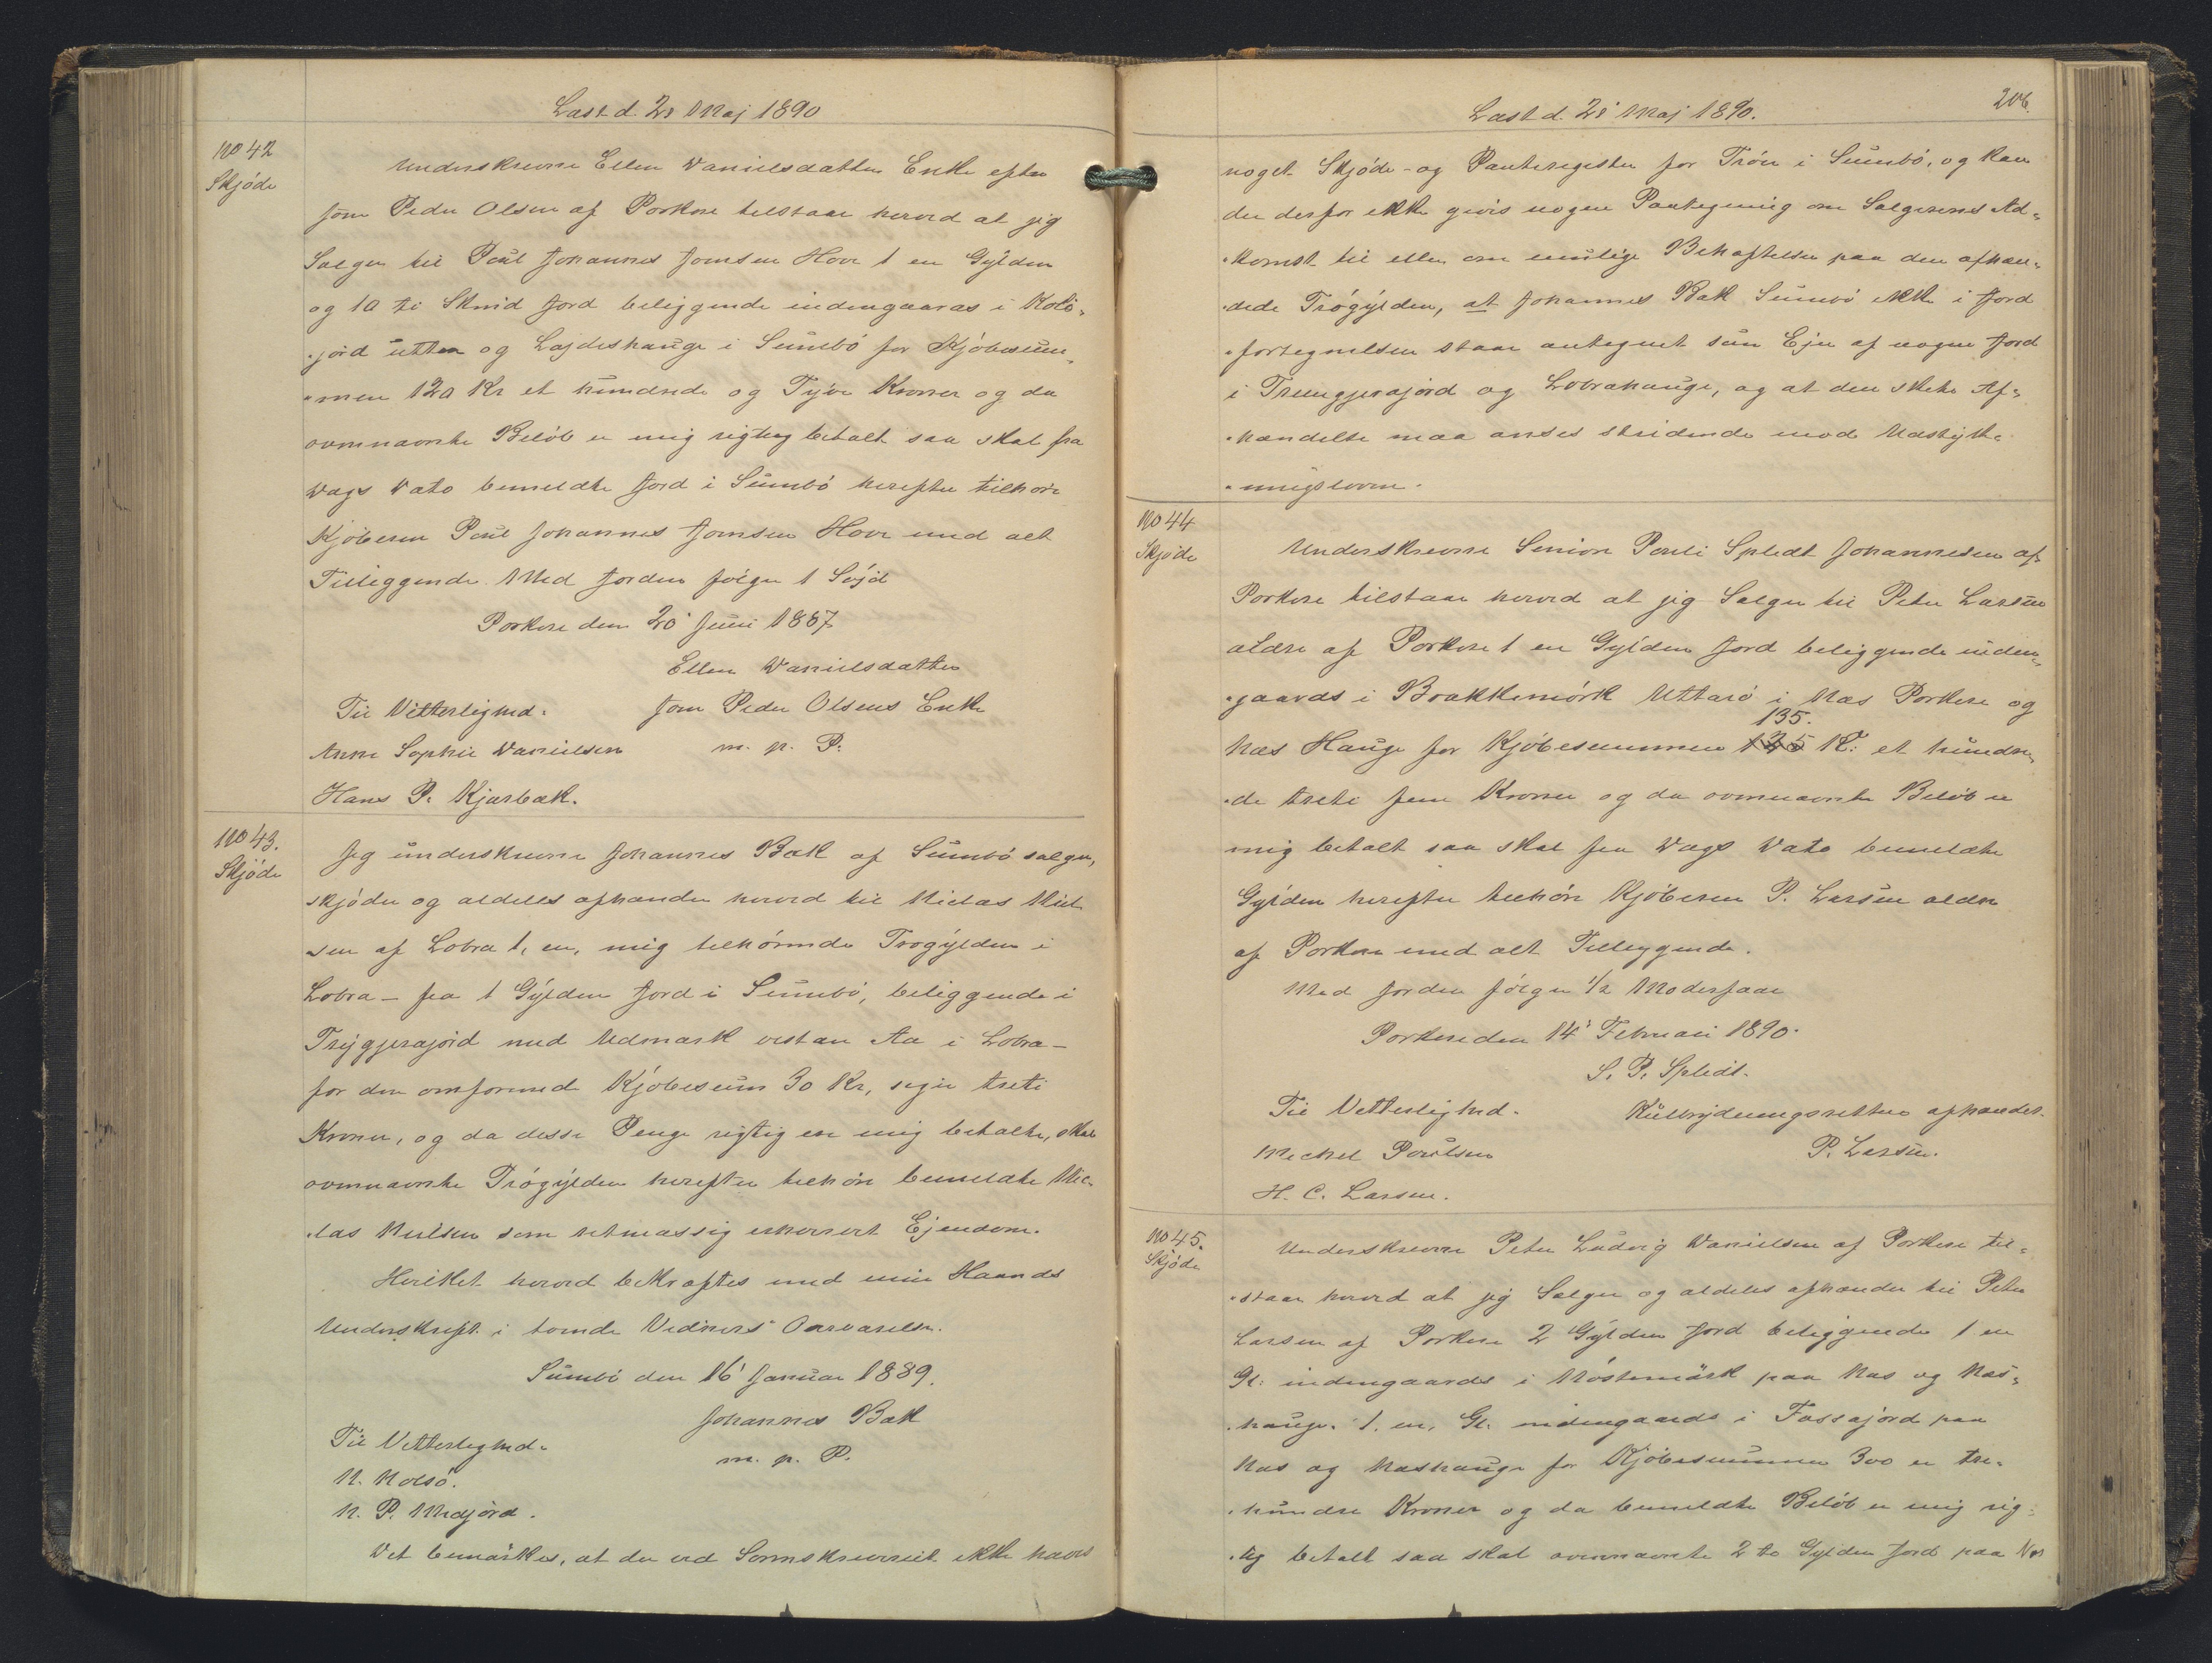 Læst d. 28 Maj 1890
No 42
Skjöde
Underskrevne Ellen Danielsdatter Enke efter
Joen Peder Olsen af Porkere tilstaar herved at jeg
Sælger til Poul Johannes Joensen Hove 1 en Gylden
og 10 ti Skind Jord beliggende indengaards i
jord og i Sumbö for Kjöbesum-
men 120 Kr et hundrede og Tyve Kroner og da
ovennævnte Belöb er mig rigtig betalt saa skal fra
Dags Dato bemeldte Jord i Sumbö herefter tilhöre
Kjöberen Poul Johannes Joensen Hove med alt
Tilliggende. Med Jorden fölger 1 Söjd
Porkere den 20' Juni 1887
Ellen Danielsdatter
Til Vitterlighed. Joen Peder Olsens Enke
Anne Sophie Danielsen m. p. P.
Hans P. Kjærbæk.
No 43.
Skjöde
Jeg underskrevne Johannes Bæk af Sumbö sælger,
skjöder og aldeles afhænder herved til Niclas Niel-
sen af Lobra 1, en, mig tilhörende Trögylden i
Lobra - fra 1 Gylden Jord i Sumbö, beliggende i
Tryggjerajord med Udmark vestan Aa i Lobra -
for den omforenede Kjöbesum 30 Kr, siger treti
Kroner, og da disse Penge rigtig ere mig betalte, skal
ovennævnte Trögylden herefter tilhöre bemeldte Nic-
las Nielsen som retmæssig erhvervet Ejendom.
Hvilket herved bekræftes med min Haands
Underskrift i tvende Vidners Overværelse.
Sumbö den 16' Januar 1889.
Johannes Bæk
Til Vitterlighed.
m. p. P.
N. Holsö.
N. P. Midjord.
Det bemærkes, at der ved Sorenskriveriet ikke haves
206.
Læst d. 28' Maj 1890.
noget Skjöde- og Panteregister for Tröer i Sumbö, og kan
der derfor ikke gives nogen Paategning om Sælgerens Ad-
komst til eller om mulige Behæftelser paa den afhæn-
dede Trögylden, at Johannes Bæk Sumbö ikke i Jord
fortegnelsen staar antegnet som Ejer af nogen Jord
i Trenggjerajord og Lobrahauge, og at den skete Af-
hændelse maa anses stridende mod Udstyk-
ningsloven.
No 44
Skjöde
Underskrevne Senior Pouli Splidt Johannesen af
Porkere tilstaar herved at jeg Sælger til Peter Larsen
ældre af Porkere 1 en Gylden Jord beliggende inden-
gaards i Brakkemörk i Næs Porkere og
135.
Næs Hauge for Kjöbesummen Kr: et hundre-
de treti fem Kroner og da ovennævnte Belöb er
mig betalt saa skal fra Dags Dato bemeldte
Gylden herefter tilhöre Kjöberen P. Larsen ældre
af Porkere med alt Tilliggende.
Med Jorden fölger 1/2 Moderfaar
Porkere den 14' Februari 1890.
S. P. Splidt.
Til Vitterlighed. Kulbrydningsretten afhændet.
Mechel Poulsen P. Larsen.
H. C. Larsen.
No 45.
Skjöde
Underskrevne Peter Ludvig Danielsen af Porkere til-
staar herved at jeg Sælger og aldeles afhænder til Peter
Larsen af Porkere 2 Gylden Jord beliggende 1 en
Gl: indengaards i paa Næs og Næs-
hauge. 1, en, Gl. indengaards i Fossajord paa
Næs og Næshauge for Kjöbesummen 300 er tre-
hundre Kroner og da bemeldte Belöb er mig rig-
tig betalt saa skal ovennævnte 2 to Gylden Jord paa Næs